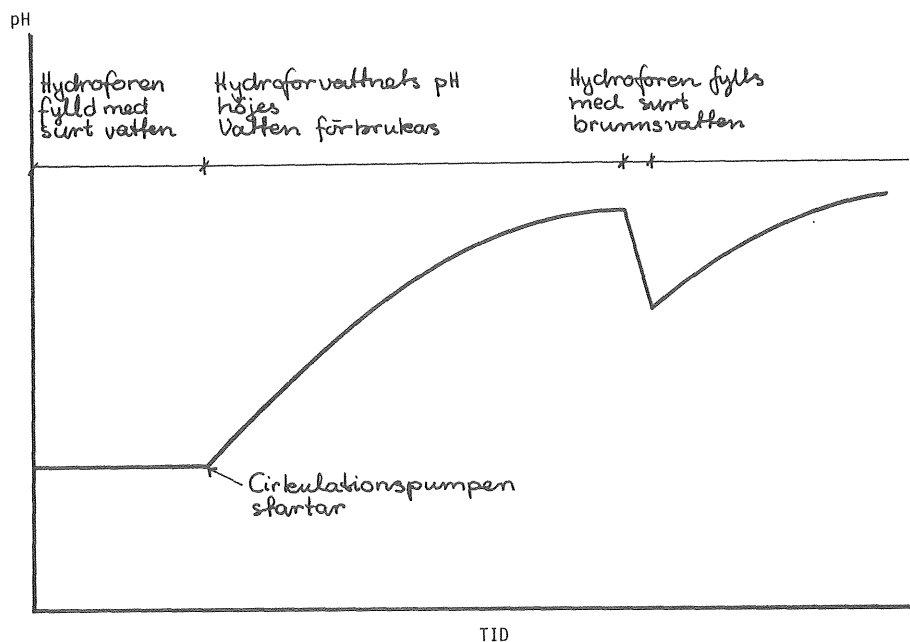 pH
Hydroforen
fylld med
surt vatten
Hydroforvattnets pH
höjes
Vatten förbrukas
Hydroforen fylls
med surt
brunnsvatten
Cirkulationspumpen
startar
TID